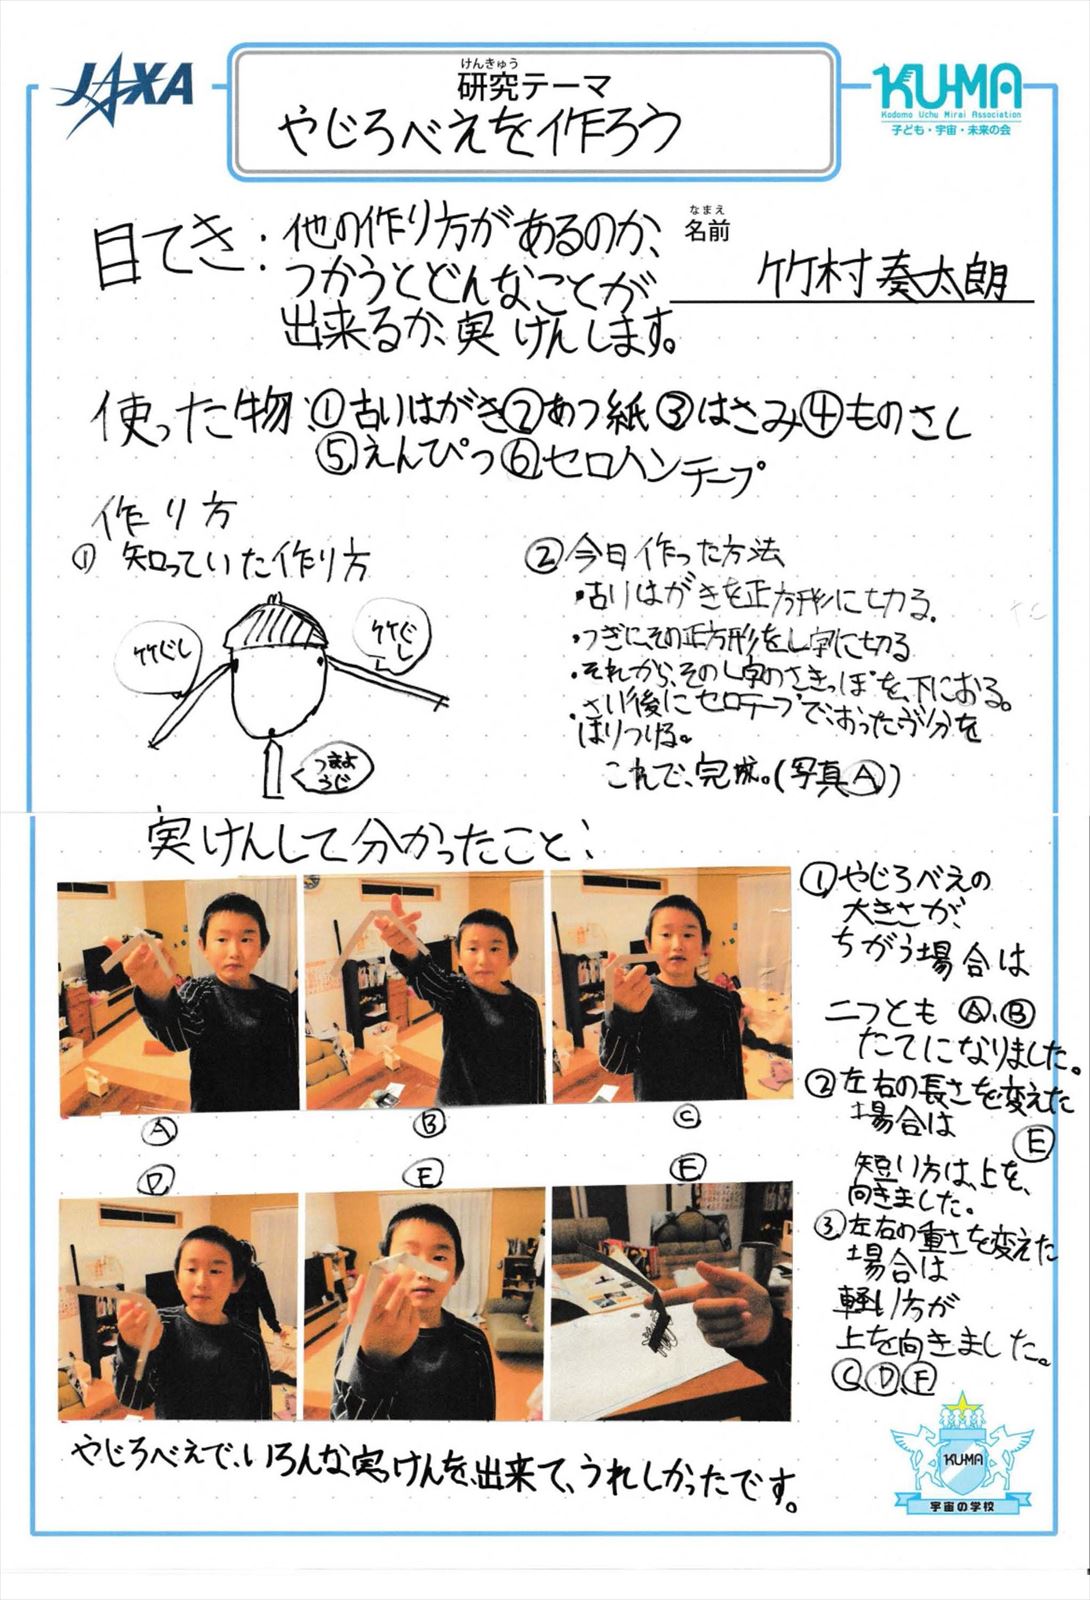 JAXA
けんきゅう
研究テーマ
やじろべえを作ろう
KU-MA
Kodomo Uchu Mirai Association
子ども・宇宙・未来の会
目てき:他の作り方があるのか、
つかうとどんなことが
出来るか、実けんします。
なまえ
名前
竹村奏太朗
使った物:①古いはがき②あつ紙③はさみ④ものさし
⑤えんぴつ⑥セロハンテープ
作り方
① 知っていた作り方
竹ぐし
竹ぐし
つまよ
うじ
②今日作った方法
・古いはがきを正方形に切る。
・つぎにその正方形をL字に切る
・それから、そのL字のさきっぽを、下におる。
・さい後にセロテープで、おった部分を
はりつける。
これで、完成。(写真Ⓐ)
実けんして分かったこと:
Ⓐ
Ⓑ
Ⓒ
Ⓓ
Ⓔ
Ⓕ
①やじろべえの
大きさが、
ちがう場合は
二つとも Ⓐ、Ⓑ
たてになりました。
②左右の長さを変えた
場合は
Ⓔ
短い方は、上を、
向きました。
③左右の重さを変えた
場合は
軽い方が
上を向きました。
Ⓒ、Ⓓ、Ⓕ
やじろべえで、いろんな実けんを、出来て、うれしかったです。
KU-MA
宇宙の学校